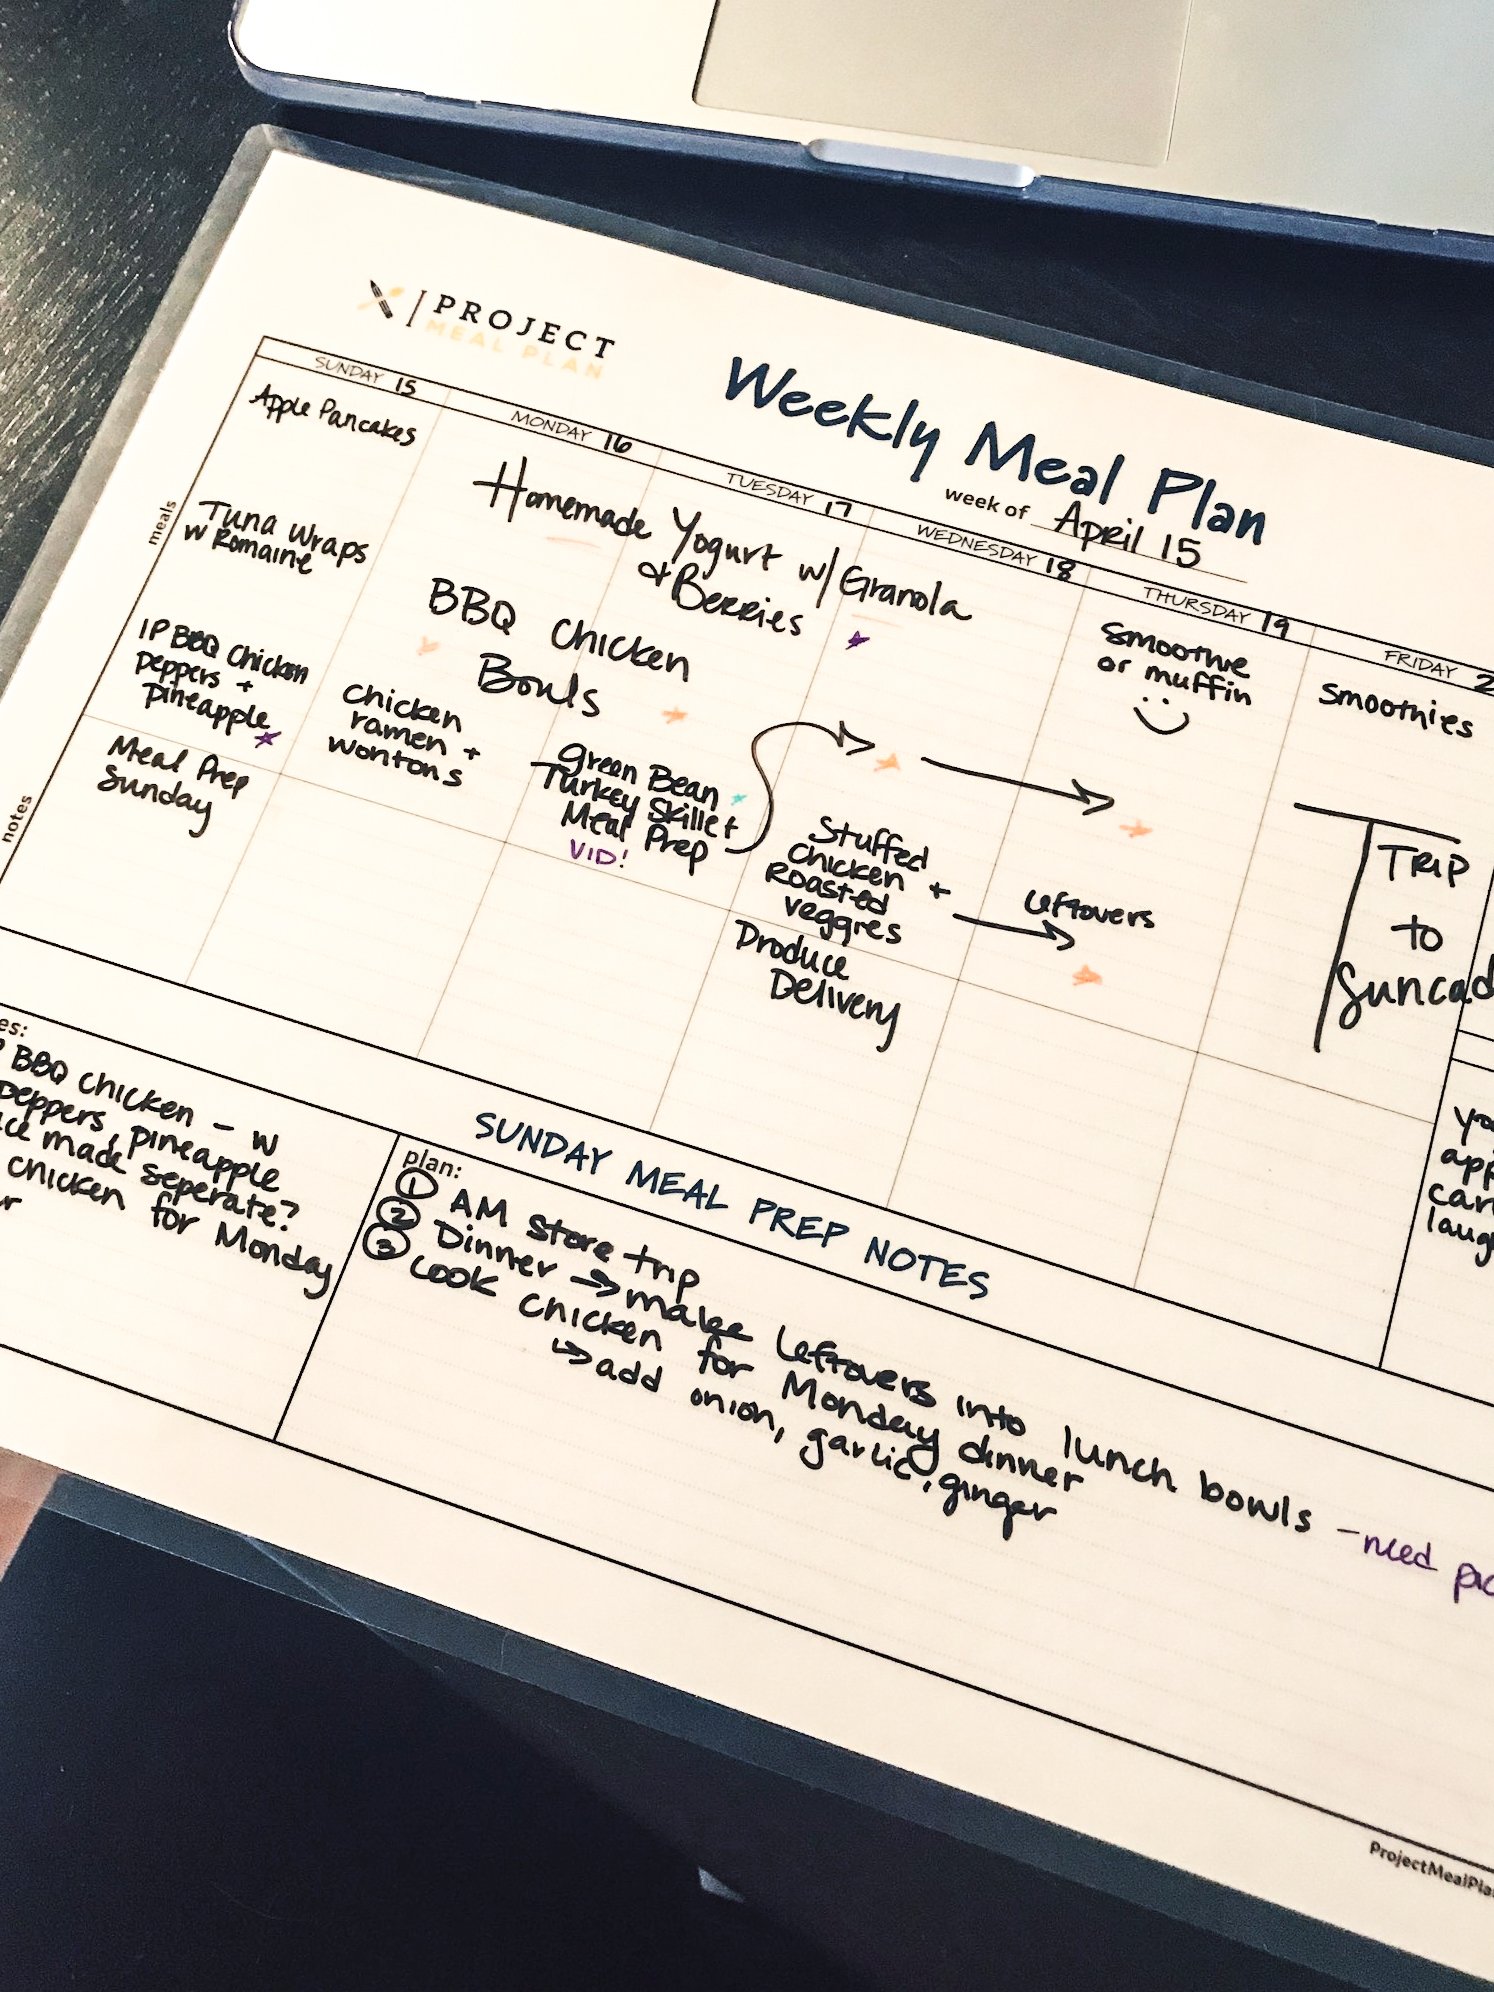 PROJECT
MEAL PLAN
Weekly Meal Plan
week of April 15
SUNDAY 15
MONDAY 16
TUESDAY 17
WEDNESDAY 18
THURSDAY 19
FRIDAY 2
meals
Apple Pancakes
Tuna Wraps
w Romaine
IP BBQ Chicken
peppers +
pineapple
Homemade Yogurt w/ Granola
& Berries
BBQ Chicken
Bowls
Chicken
ramen +
wontons
Green Bean
Turkey Skillet
Meal Prep
VID!
Stuffed
Chicken +
Roasted
veggies
Smoothie
or muffin
Leftovers
Smoothies
TRIP
to
Suncad
notes
Meal Prep
Sunday
Produce
Delivery
SUNDAY MEAL PREP NOTES
es:
BBQ Chicken - w
peppers, pineapple
made seperate?
chicken for Monday
plan:
① AM Store trip
② Dinner → make leftovers into lunch bowls - need
③ Cook chicken for Monday dinner
↳ add onion, garlic, ginger
yo
app
car
laug
ProjectMealPla